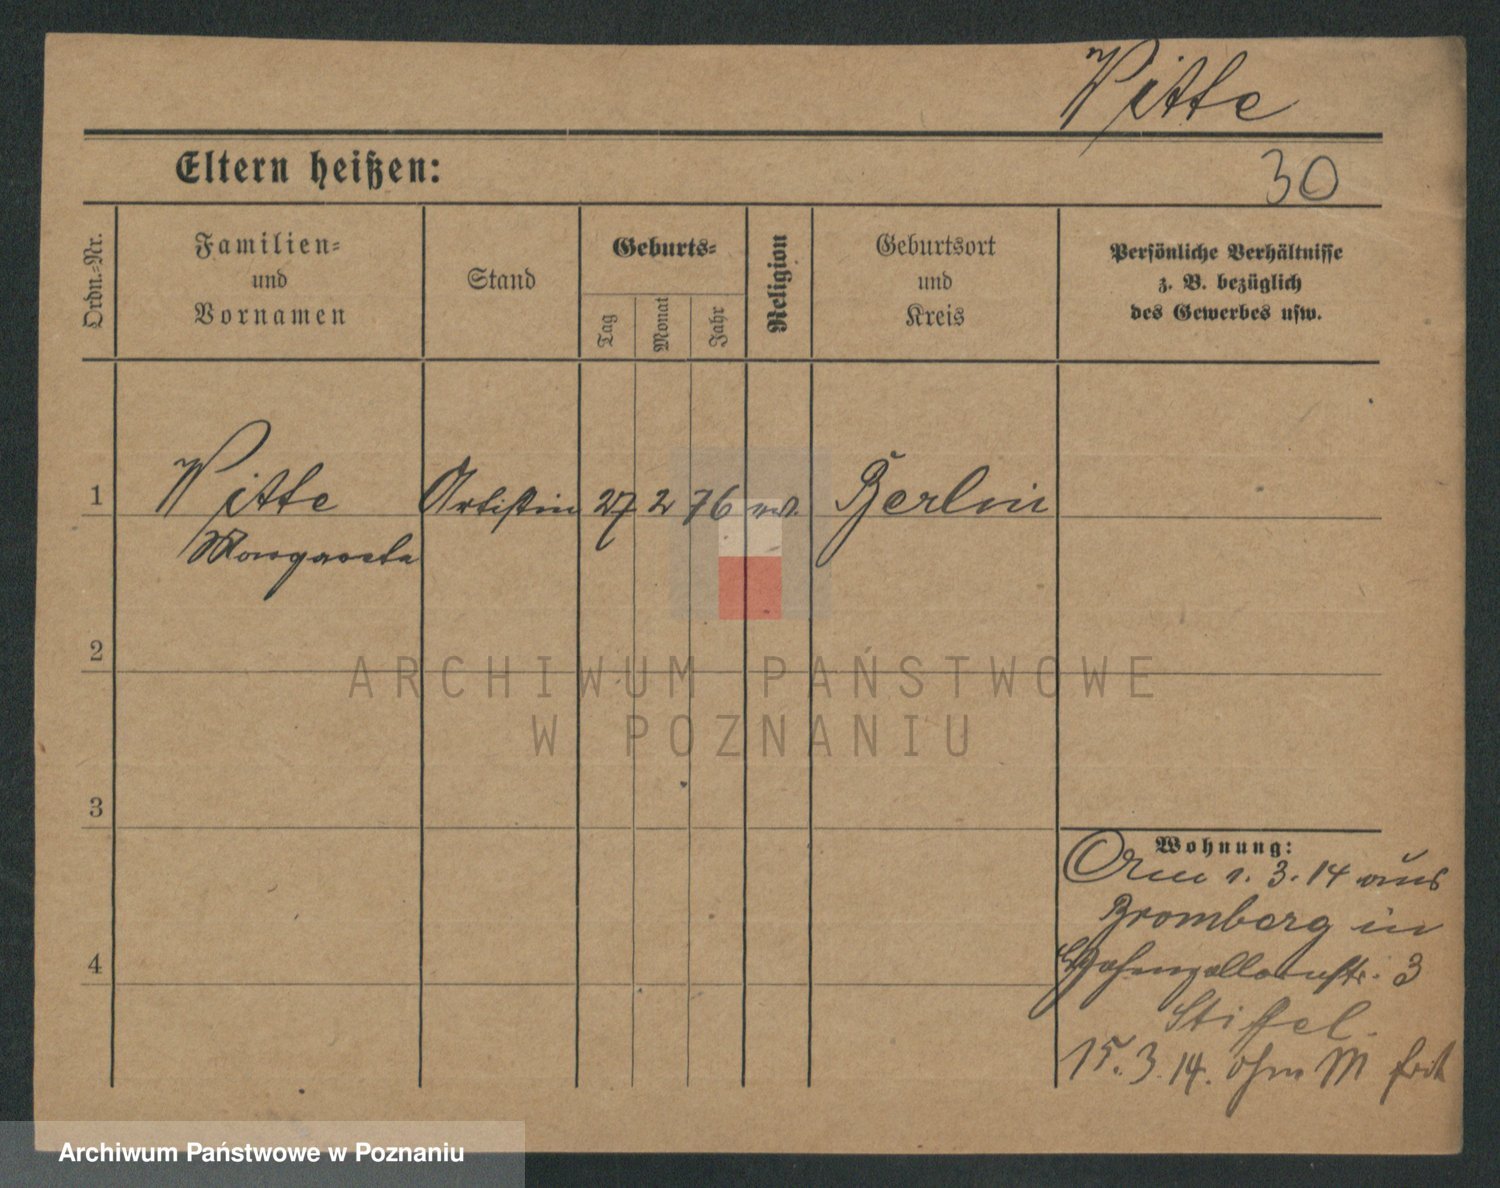 Witte
Eltern heißen:
30
Ordn.-Nr.
Familien-
und
Vornamen
Stand
Geburts-
Tag
Monat
Jahr
Religion
Geburtsort
und
Kreis
Persönliche Verhältnisse
z. B. bezüglich
des Gewerbes usw.
1
Witte Artistin 27 2 76 ev. Berlin
Margareta
2
ARCHIWUM PAŃSTWOWE
W POZNANIU
3
Wohnung:
Am 1. 3. 14 aus
Bromberg in
Hohenzollernstr. 3
4
Stiffel.
15. 3. 14. ohm M fort
Archiwum Państwowe w Poznaniu